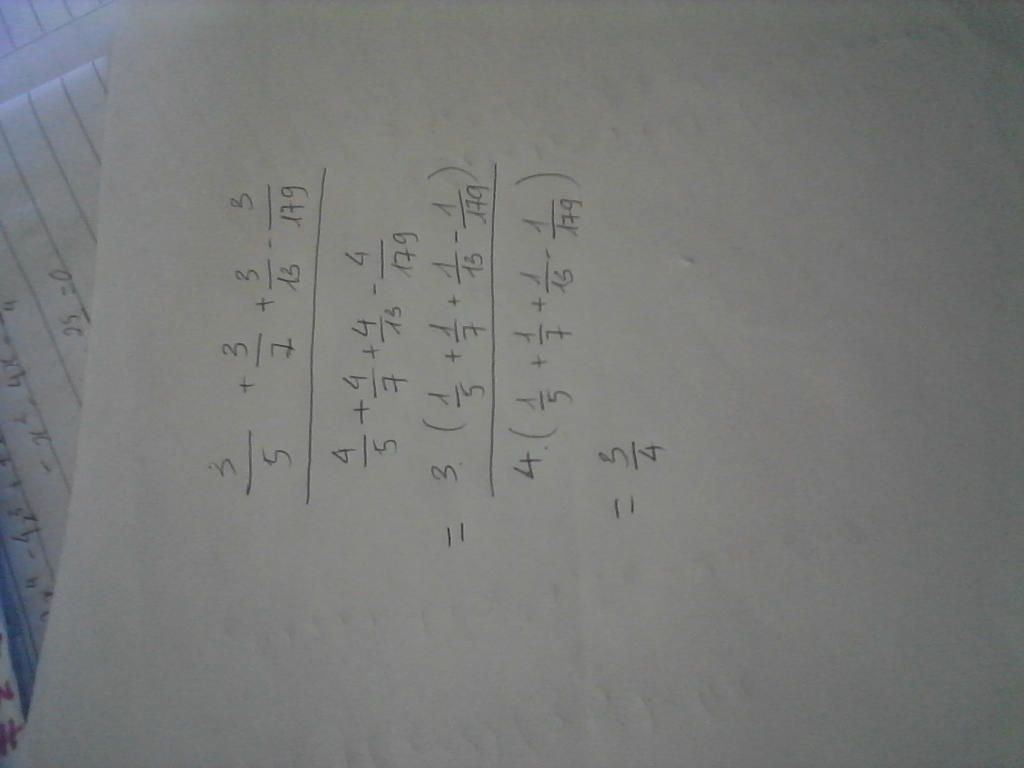 3/5 + 3/7 + 3/13 - 3/179
4/5 + 4/7 + 4/13 - 4/179
= 3.(1/5 + 1/7 + 1/13 - 1/179)
4.(1/5 + 1/7 + 1/13 - 1/179)
= 3/4